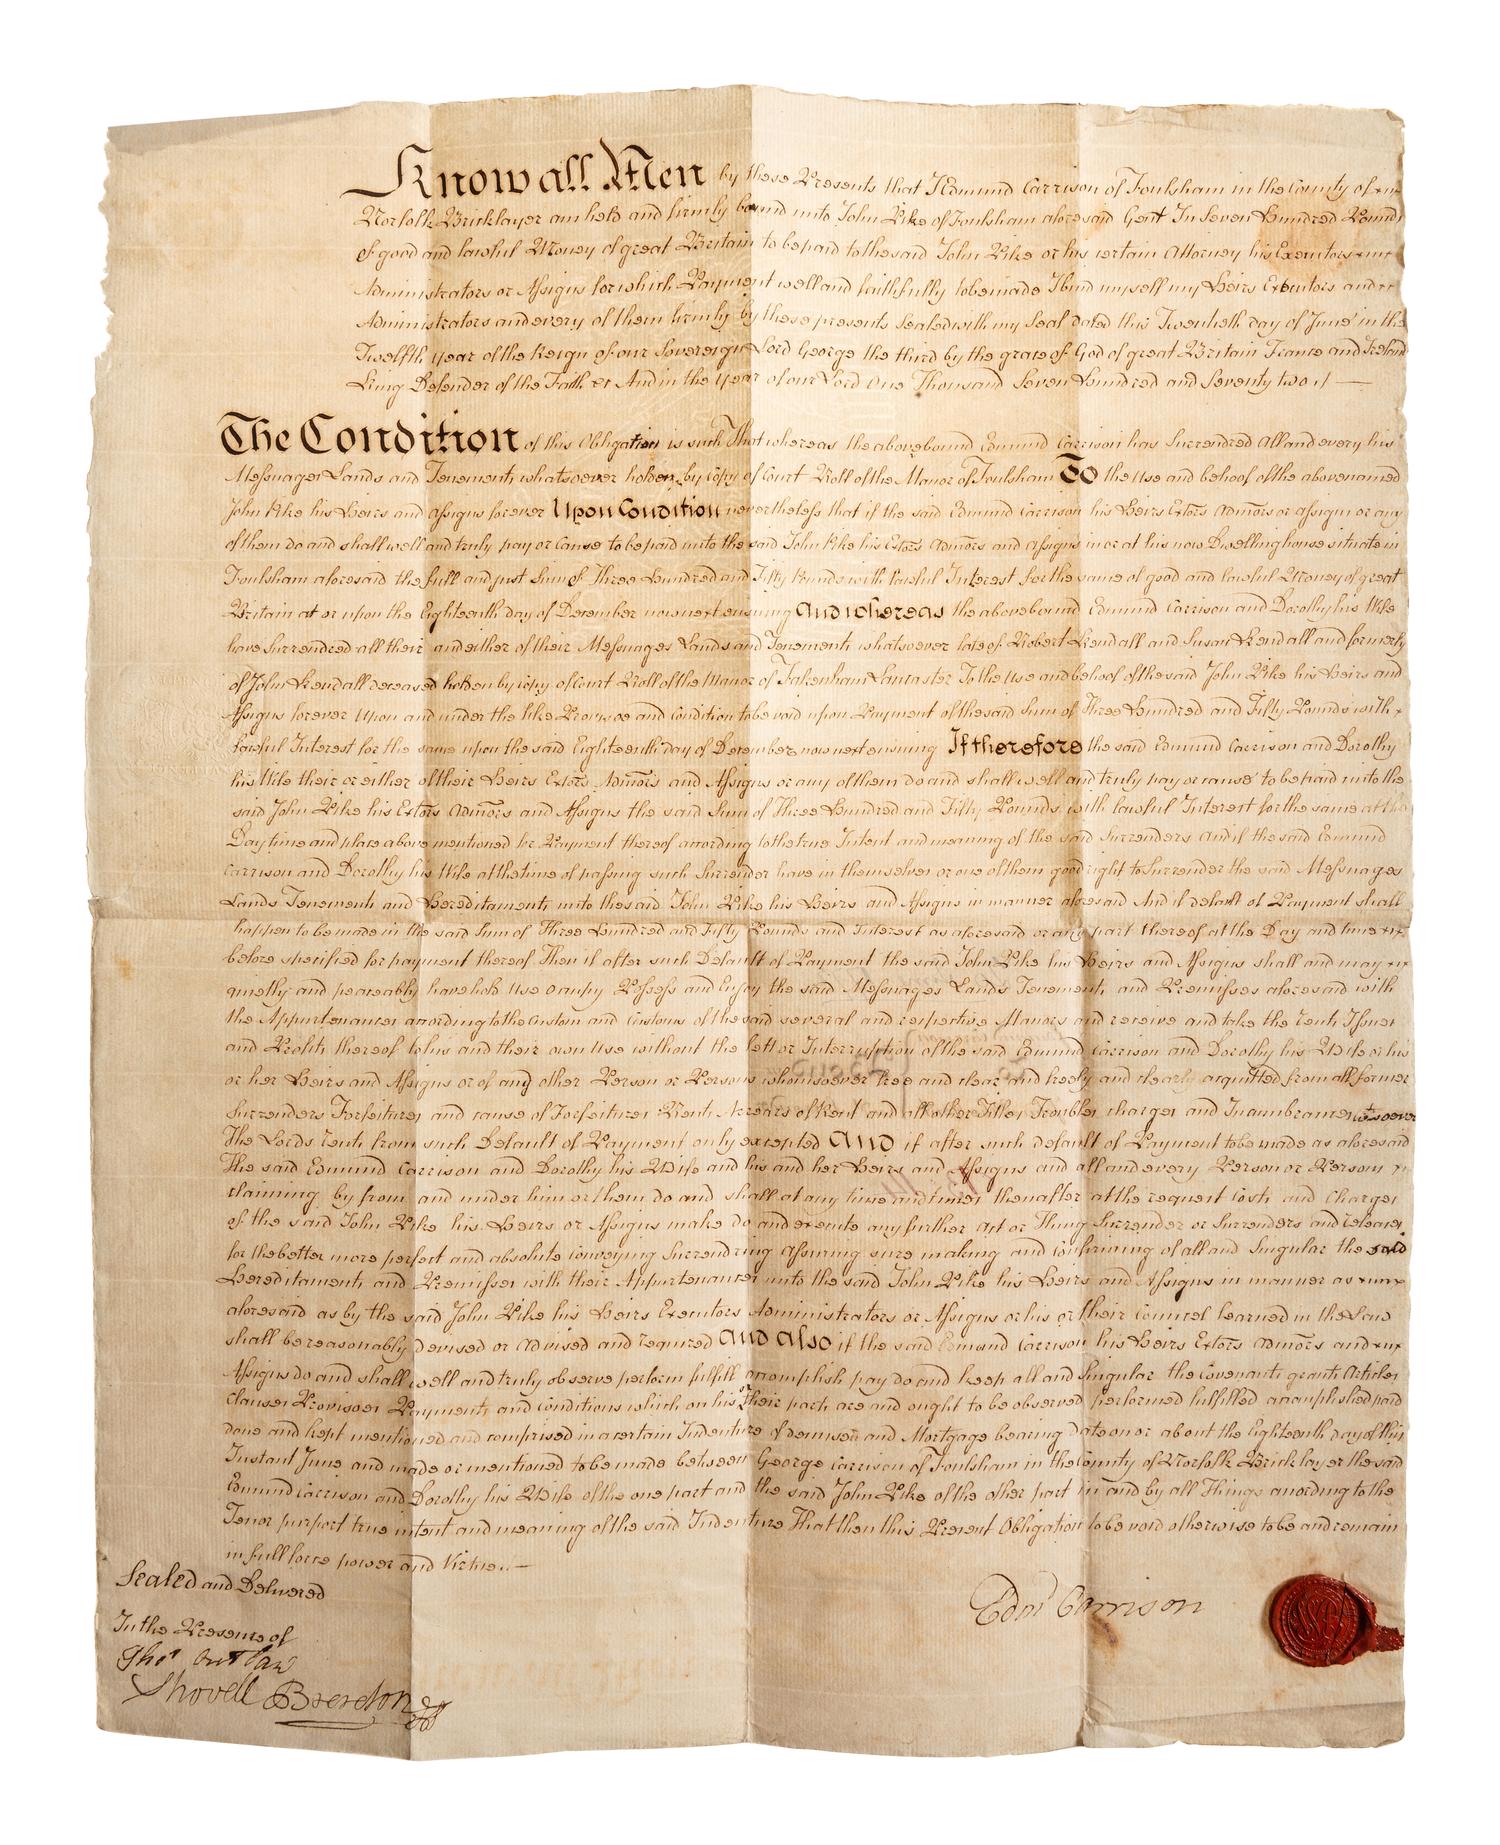 Know all Men by these Presents that I Edmund Carrison of Foulsham in the County of
Norfolk Bricklayer am held and firmly bound unto John Pike of Foulsham aforesaid Gent In Seven Hundred Pounds
of good and lawful Money of great Britain to be paid to the said John Pike or his certain Attorney his Executors
Administrators or Assigns for which Payment well and faithfully to be made I bind myself my Heirs Executors and
Administrators and every of them firmly by these presents Sealed with my Seal dated this Twentieth day of June in the
Twelfth year of the Reign of our Sovereign Lord George the third by the grace of God of great Britain France and Ireland
King Defender of the Faith &c And in the year of our Lord One Thousand Seven Hundred and Seventy two //
The Condition of this Obligation is such That whereas the abovebound Edmund Carrison has Surrendred All and every his
Messuages Lands and Tenements whatsoever holden by Copy of Court Roll of the Manor of Foulsham To the Use and behoof of the abovenamed
John Pike his Heirs and Assigns forever Upon Condition nevertheless that if the said Edmund Carrison his Heirs Extors Admors or assigns or any
of them do and shall well and truly pay or cause to be paid unto the said John Pike his Extors Admors and Assigns in or at his now Dwelling house situate in
Foulsham aforesaid the full and just Sum of Three Hundred and Fifty Pounds with lawful Interest for the same of good and lawful Money of great
Britain at or upon the Eighteenth day of December now next ensuing And whereas the abovebound Edmund Carrison and Dorothy his Wife
have Surrendred all their and either of their Messuages Lands and Tenements whatsoever late of Robert Kendall and Susan Kendall and formerly
of John Kendall deceased holden by copy of Court Roll of the Manor of Fakenham Lancaster To the Use and behoof of the said John Pike his Heirs and
Assigns forever Upon and under the like Provisoe and Condition to be void upon Payment of the said Sum of Three Hundred and Fifty Pounds with
lawful Interest for the same upon the said Eighteenth day of December now next ensuing If therefore the said Edmund Carrison and Dorothy
his Wife their or either of their Heirs Extors Admors and Assigns or any of them do and shall well and truly pay or cause to be paid unto the
said John Pike his Extors Admors and Assigns the said Sum of Three Hundred and Fifty Pounds with lawful Interest for the same at the
Day time and place above mentioned for Payment thereof according to the true Intent and meaning of the said Surrenders And if the said Edmund
Carrison and Dorothy his Wife at the time of passing such Surrender have in themselves or one of them good right to Surrender the said Messuages
Lands Tenements and Hereditaments unto the said John Pike his Heirs and Assigns in manner aforesaid And if default of Payment shall
happen to be made in the said Sum of Three Hundred and Fifty Pounds and Interest as aforesaid or any part thereof at the Day and time
before specified for payment thereof Then if after such Default of Payment the said John Pike his Heirs and Assigns shall and may
quietly and peaceably have hold Use Occupy Possess and Enjoy the said Messuages Lands Tenements and Premisses aforesaid with
the Appurtenances according to the Custom and Customs of the said several and respective Manors and receive and take the rents Issues
and Profits thereof to his and their own Use without the lett or Interruption of the said Edmund Carrison and Dorothy his Wife or his
or her Heirs and Assigns or of any other Person or Persons whomsoever free and clear and freely and clearly acquitted from all former
Surrenders Forfeitures and cause of Forfeitures Rents Arrears of Rent and all other Titles Troubles charges and Incumbrances wtsoever
The Lords rents from such Default of Payment only excepted And if after such default of Payment to be made as aforesaid
The said Edmund Carrison and Dorothy his Wife and his and her Heirs and Assigns and all and every Person or Persons
claiming by from and under him or them do and shall at any time and times thereafter at the request Costs and Charges
of the said John Pike his Heirs or Assigns make do and execute any further Act or Thing Surrender or Surrenders and releases
for the better more perfect and absolute conveying Surrendring assuring sure making and confirming of all and Singular the said
Hereditaments and Premisses with their Appurtenances unto the said John Pike his Heirs and Assigns in manner as
aforesaid as by the said John Pike his Heirs Executors Administrators or Assigns or his or their Council learned in the Law
shall be reasonably devised or advised and required And also if the said Edmund Carrison his Heirs Extors Admors and
Assigns do and shall well and truly observe perform fulfill accomplish pay do and keep all and Singular the Covenants grants Articles
Clauses Provisoes Payments and Conditions which on his or their parts are and ought to be observed performed fulfilled accomplished paid
done and kept mentioned and comprised in a certain Indenture of demise and Mortgage bearing date on or about the Eighteenth day of this
Instant June and made or mentioned to be made between George Carrison of Foulsham in the County of Norfolk Bricklayer the said
Edmund Carrison and Dorothy his Wife of the one part and the said John Pike of the other part in and by all Things according to the
Tenor purport true intent and meaning of the said Indenture That then this Present Obligation to be void otherwise to be and remain
in full force power and Virtue
Sealed and Delivered
In the Presence of
Edmd Carrison
Thos Outlaw
Shovell Brereton